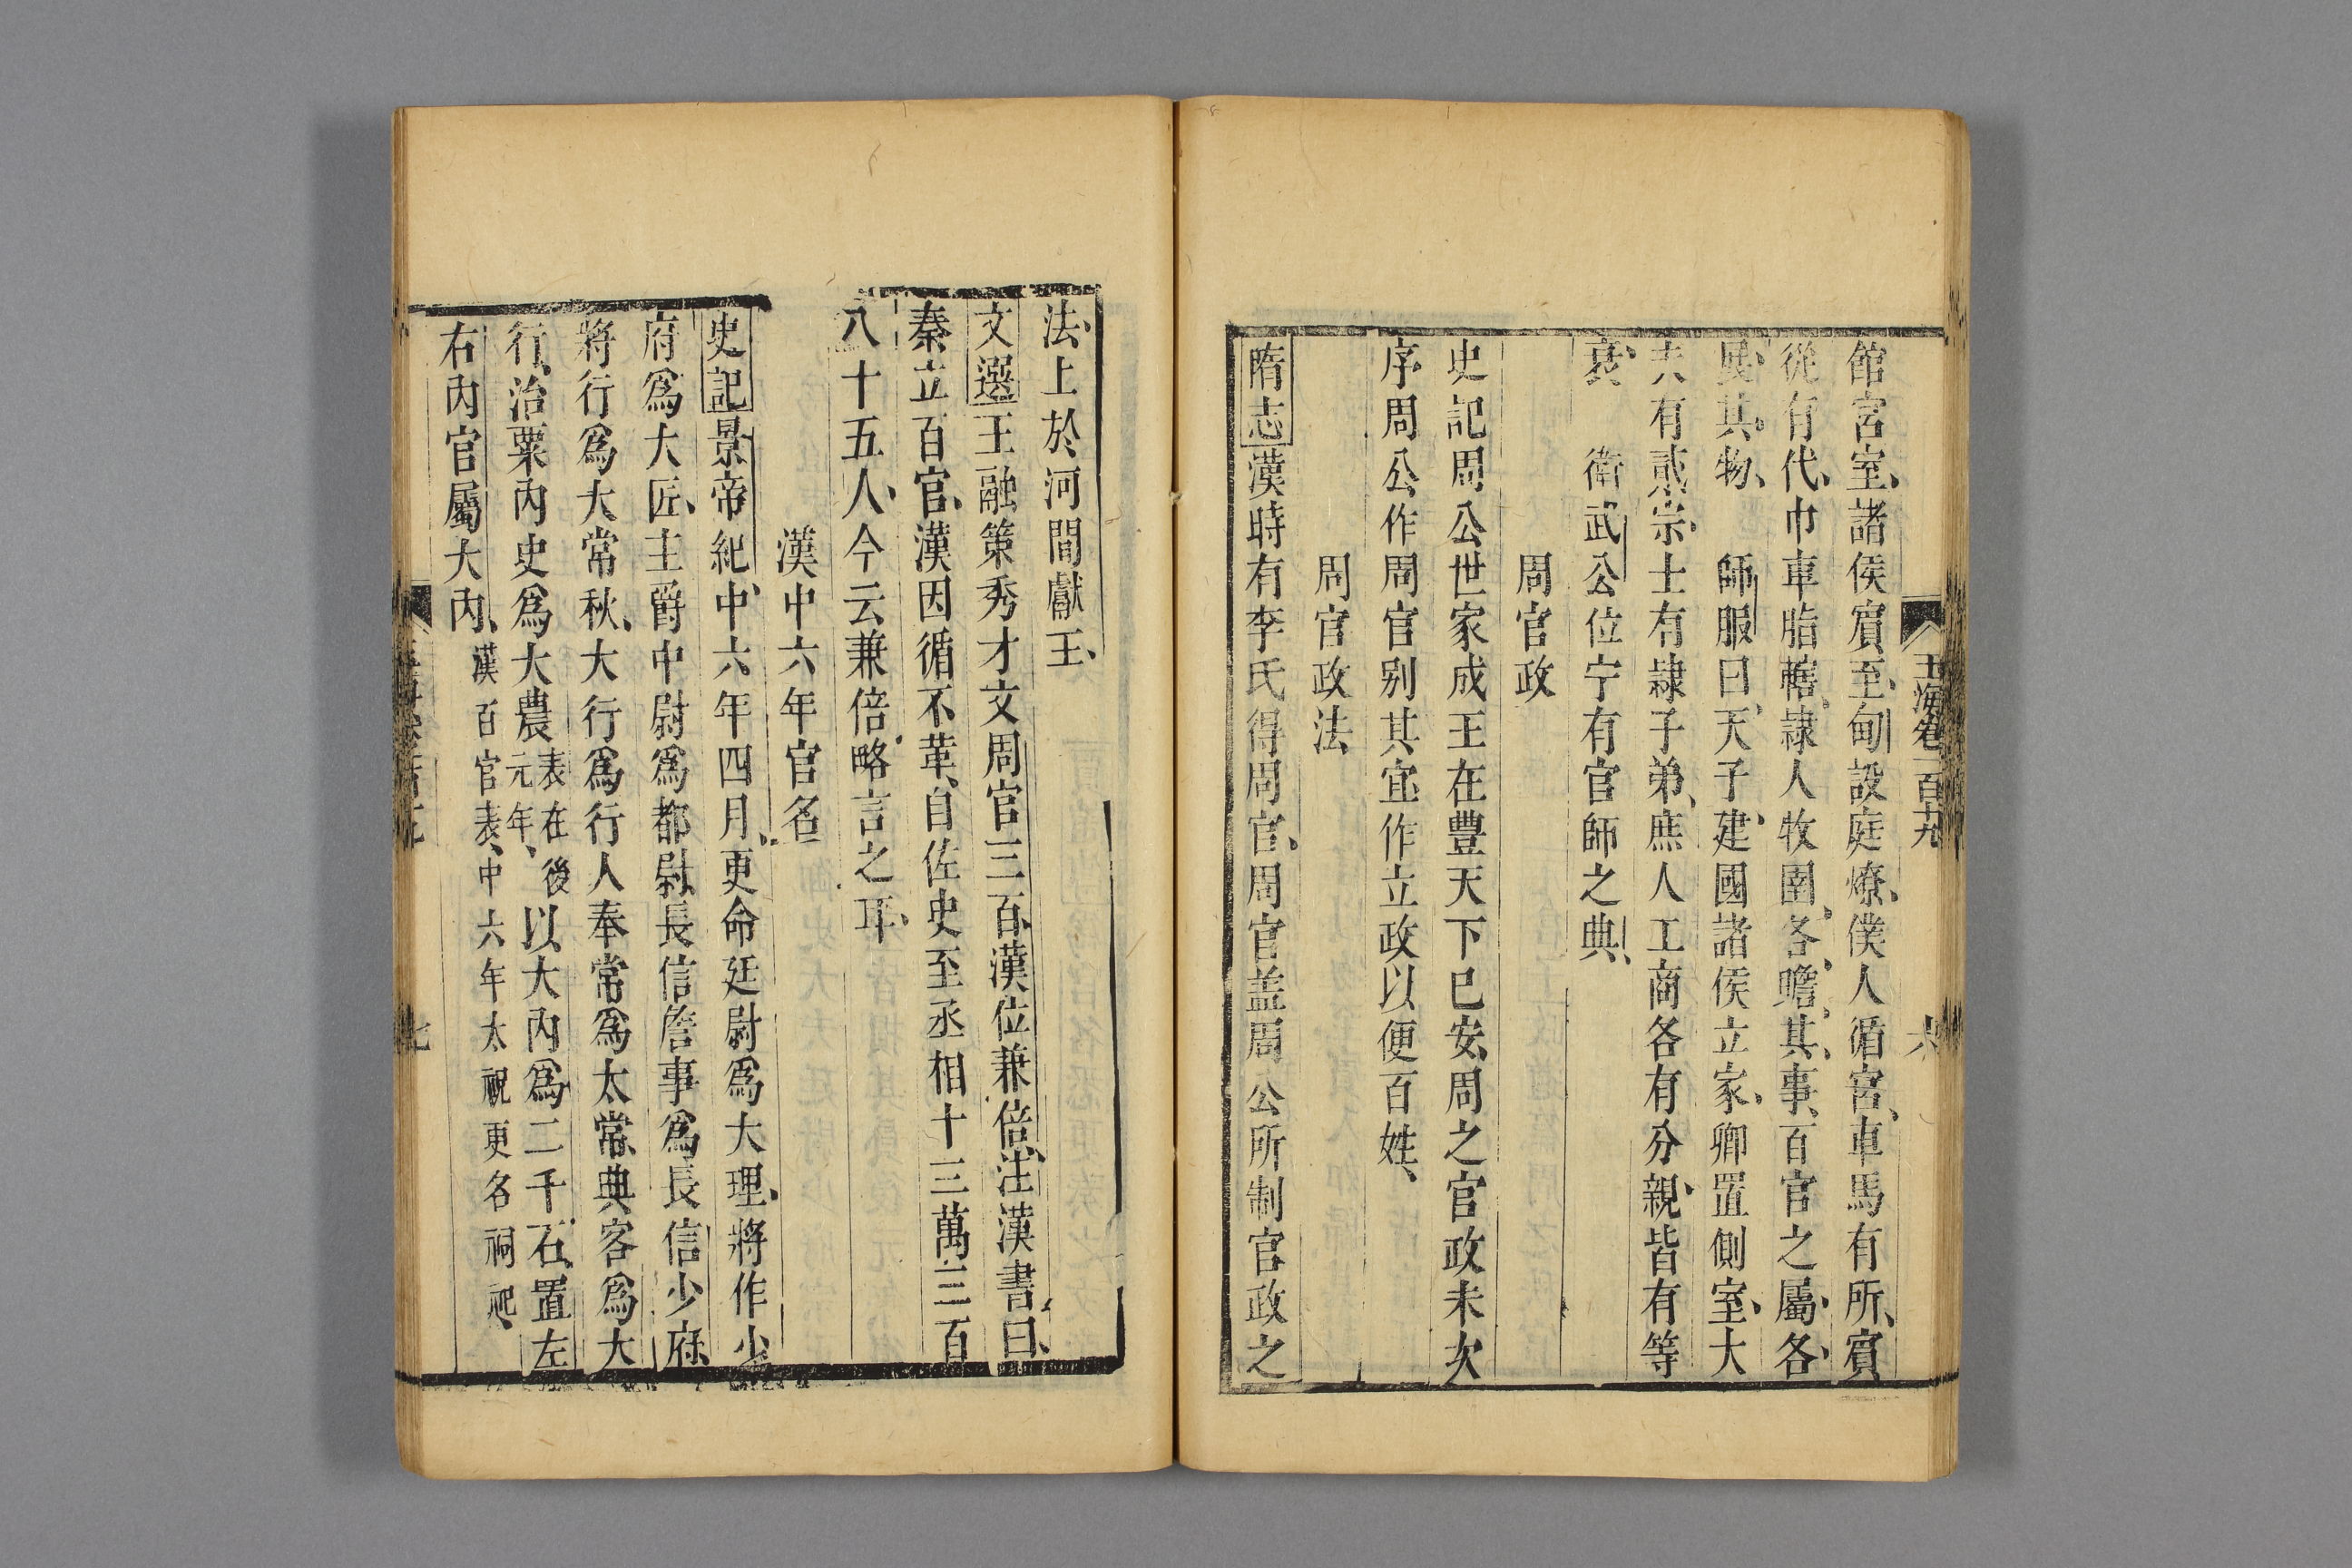 玉海卷一百十九
六
館宮室、諸侯賔至、甸設庭燎、僕人循宮、車馬有所、賔
從有代、巾車脂轄、隷人牧圉、各瞻其事、百官之屬、各
展其物、師服曰、天子建國、諸侯立家、卿置側室、大
夫有貳宗、士有隷子弟、庶人工商各有分親、皆有等
衰、衛武公位宁有官師之典、
周官政
史記周公世家成王在豐天下已安、周之官政未次
序周公作周官别其宜作立政以便百姓、
周官政法
隋志漢時有李氏得周官、周官盖周公所制官政之
法、上於河間獻王、
文選王融策秀才文周官三百、漢位兼倍、注漢書曰、
秦立百官、漢因循不革、自佐史至丞相十三萬三百
八十五人、今云兼倍、略言之耳、
漢中六年官名
史記景帝紀、中六年四月、更命廷尉爲大理、將作少
府爲大匠、主爵中尉爲都尉、長信詹事爲長信少府、
將行爲大常秋、大行爲行人奉常爲太常、典客爲大
行、治粟内史爲大農表在後元年、以大内爲二千石、置左
右内官屬大内、漢百官表、中六年太祝更名祠祀、
七